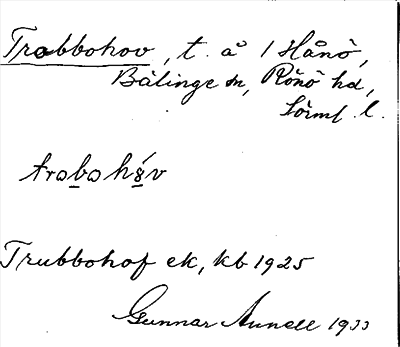 Trobbohov, t. å 1 Hånö,
Bälinge sn, Rönö hd,
Sörml. l.
trobohǿv
Trubbohof ek, kb 1925
Gunnar Aunell 1933